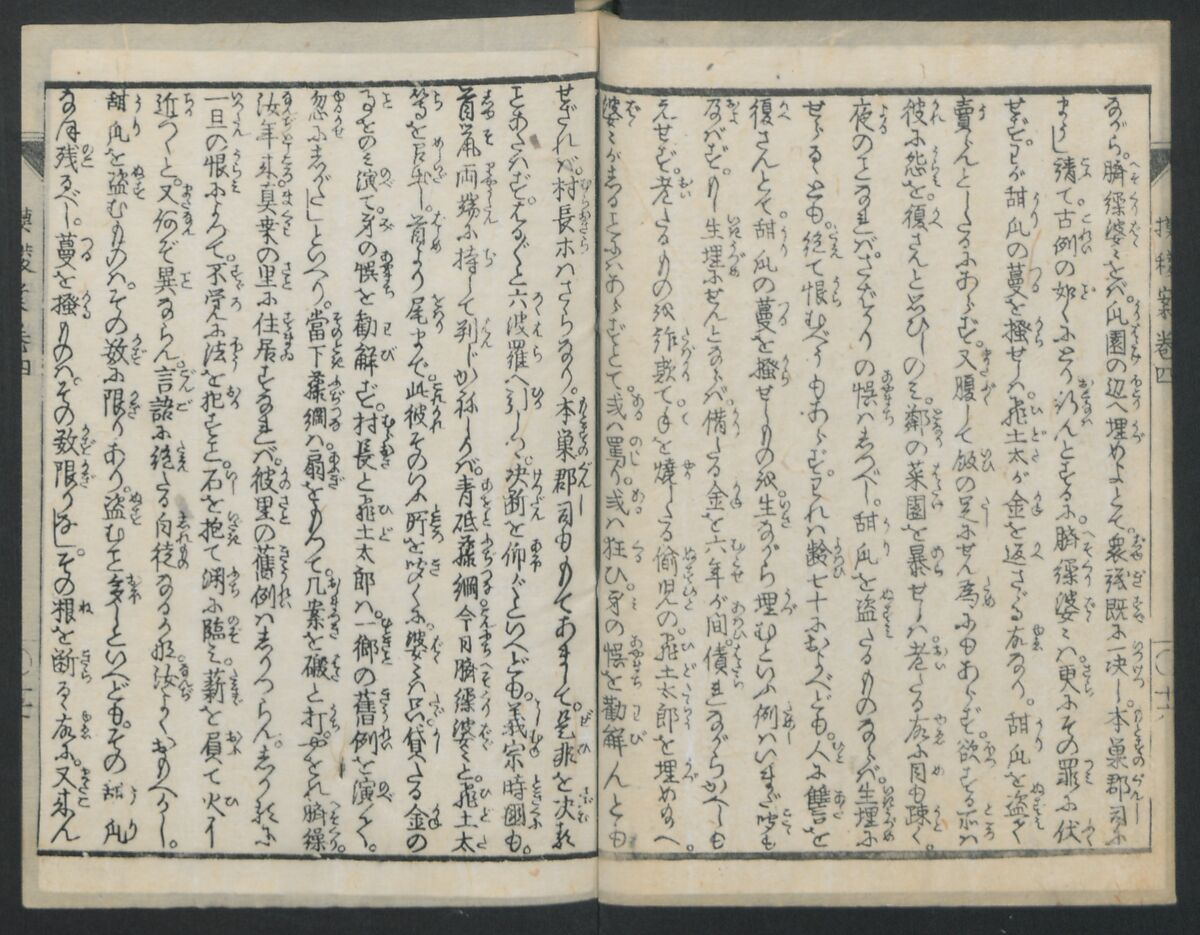 ながら。臍繰婆々をバ。瓜園の辺へ埋めよとて。衆議既に一決し。本巣郡司に
まうし請て。古例の如くにとり行んとするに。臍繰婆々ハ更にその罪に伏
せず。わが甜瓜の蔓を掻せしハ。飛土太が金を返さゞる故なり。甜瓜を盗て
賣らんとしたるにあらず。又腹して飯の足にせん為にもあらず。欲する所ハ
彼に怨を復さんと思ひしのミ。鄰の菜園を暴せしハ。老たる故に目も疎く。
夜のことなれバ。さばかりの悞ハあるべし。甜瓜を盗たるものならバ。生埋に
せらるゝとも。絶て恨むべうもあらず。われハ齢七十におよべども。人に讐を
復さんとて。甜瓜の蔓を掻せしものを。生ながら埋むといふ例ハ。いまだ聴も
及バず。もし生埋にせんとならバ。借たる金を六年が間。債れながらかへしも
えせず。老たるものを詐欺て。手を焼したる偸児の。飛土太郎を埋め給へ。
婆々がしることにハあらずとて。或ハ罵り。或ハ狂ひ。身の悞を勸解んとも
せざれバ。村長ホハさらなり。本巣郡司ももてあまして。是非を決難
とあたハず。はる〴〵と六波羅へ引もて。決断を仰ぐといへども。義宗時國も。
首鼠両端に持して。判じかねしかバ。青砥藤綱今日臍繰婆々と。飛土太
等を召出し。首より尾まで。此彼そのいふ所を聴くに。婆々ハ只貸たる金の
ことをのミ演て。身の悞を勸解ず。村長と飛土太郎ハ。一郷の舊例を演て。
忽にしがたしといへり。當下藤綱ハ扇をもつて。几案を礑と打。やをれ臍繰。
汝年来真桑の里に住居するなれバ。彼里の舊例ハしりつらん。しかるに
一旦の恨によつて。不覚に法を犯すこと。石を抱て淵に臨ミ。薪を負て火に
近つくと。又何ぞ異ならん。言語に絶たる白徒なるかな。汝よくおもへかし。
甜瓜を盗むものハ。その数に限りあり。盗むこと多しといへども。その甜瓜
なほ残るべし。蔓を掻ものハ。その数限りなし。その根を断るゝ故に。又来ん